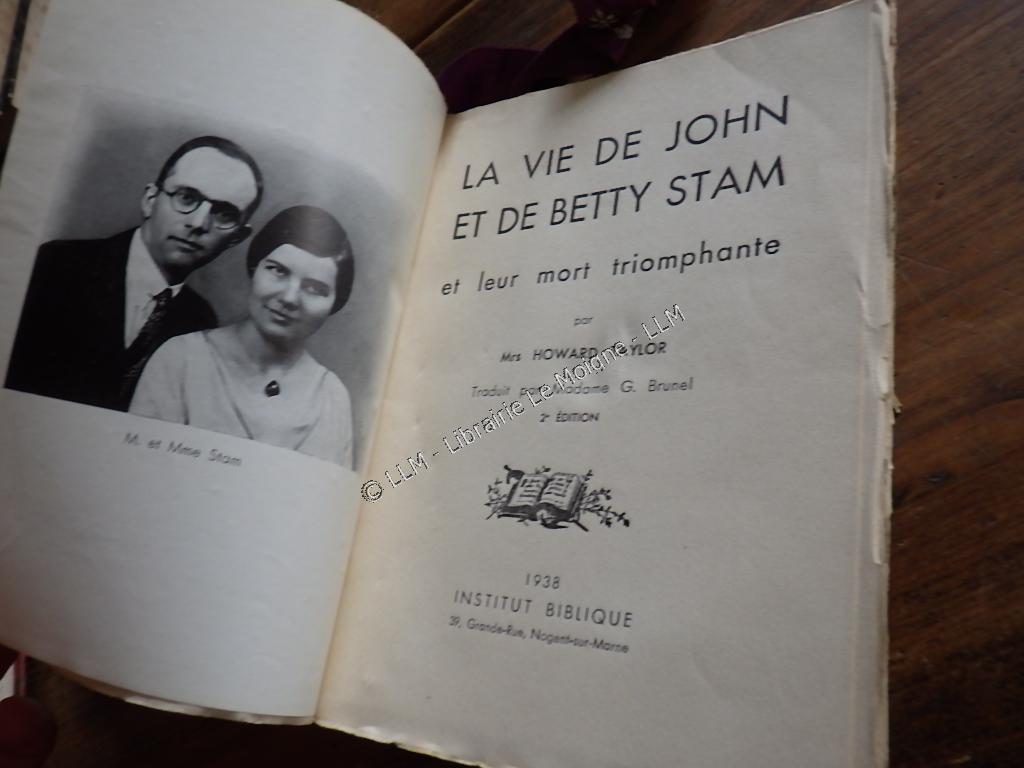 M. et Mme Stam
LA VIE DE JOHN
ET DE BETTY STAM
et leur mort triomphante
par
Mrs HOWARD TAYLOR
Traduit par Madame G. Brunel
2e ÉDITION
© LLM - Librairie Le Moigne - LLM
1938
INSTITUT BIBLIQUE
39, Grande-Rue, Nogent-sur-Marne